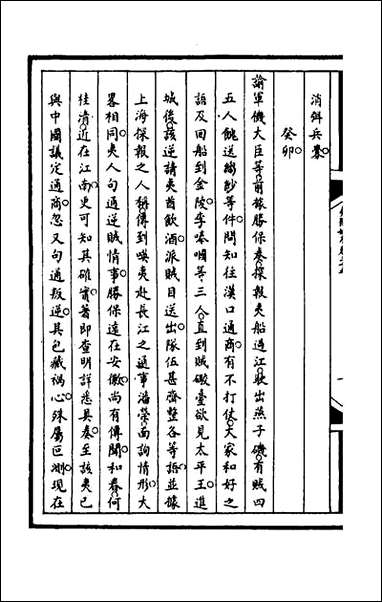 消弭兵釁
癸卯
諭軍機大臣等前據勝保奏探報夷船過江駛出燕子磯有賊四
五人餽送綢鈔等件問知往漢口通商有不打仗大家和好之
語及回船到金陵李嗪嘓等三人直到賊礮臺欲見太平王進
城後該逆請夷酋飲酒派賊目送出隊伍甚齊整各等語並據
上海探報之人稱傳到𠸄夷赴長江之通事潘榮面詢情形大
畧相同夷人句通逆賊情事勝保遠在安徽尚有傳聞和春何
桂清近在江南更可知其確實著即查明詳悉具奏至該夷已
與中國議定通商忽又句通叛逆其包藏禍心殊屬叵測現在